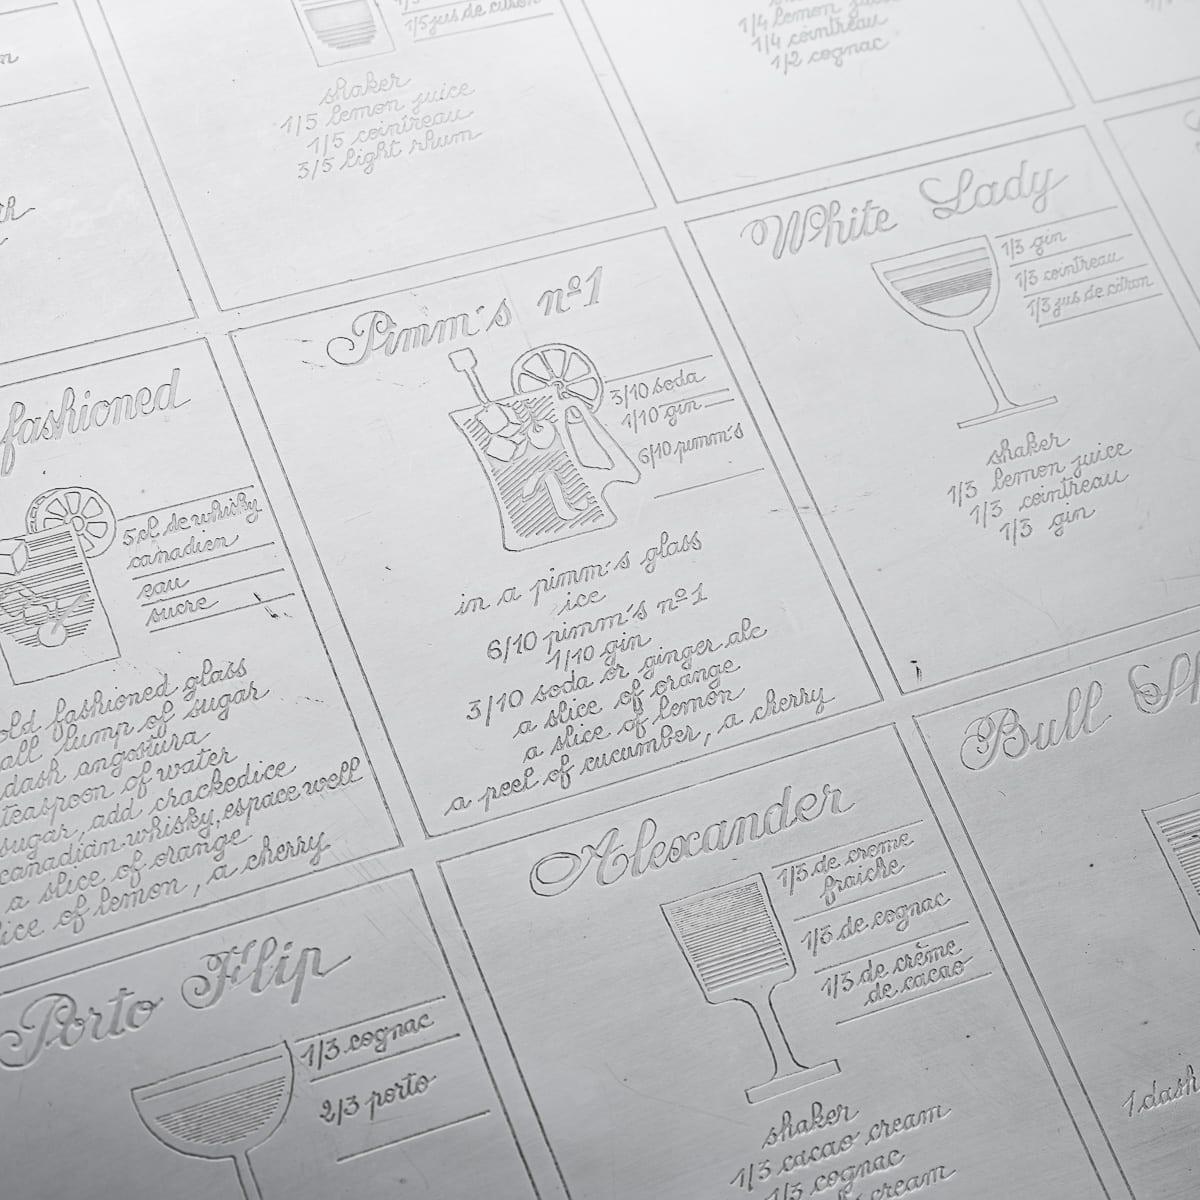 1/5 jus de citron
shaker
1/5 lemon juice
1/5 cointreau
3/5 light rhum
1/4 lemon juice
1/4 cointreau
1/2 cognac
fashioned
5cl de whisky
canadien
eau
sucre
old fashioned glass
lump of sugar
dash angostura
teaspoon of water
sugar, add crackedice
canadian whisky, espace well
a slice of orange
of lemon, a cherry
Pimm's nº1
3/10 soda
1/10 gin
6/10 pimm's
in a pimm's glass
ice
6/10 pimm's nº1
1/10 gin
3/10 soda or ginger ale
a slice of orange
a slice of lemon
a peel of cucumber, a cherry
White Lady
1/3 gin
1/3 cointreau
1/3 jus de citron
shaker
1/3 lemon juice
1/3 cointreau
1/3 gin
Porto Flip
1/3 cognac
2/3 porto
Alexander
1/3 de creme
fraiche
1/3 de cognac
1/3 de crème
de cacao
shaker
1/3 cacao cream
1/3 cognac
cream
Bull
1 dash